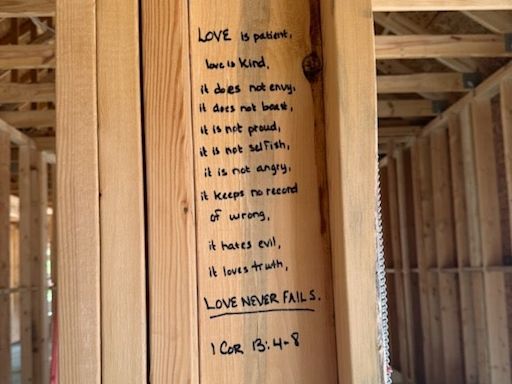 LOVE is patient,
love is kind,
it does not envy,
it does not boast,
it is not proud,
it is not selfish,
it is not angry,
it keeps no record
of wrong,
it hates evil,
it loves truth,
LOVE NEVER FAILS.
1 COR 13:4-8